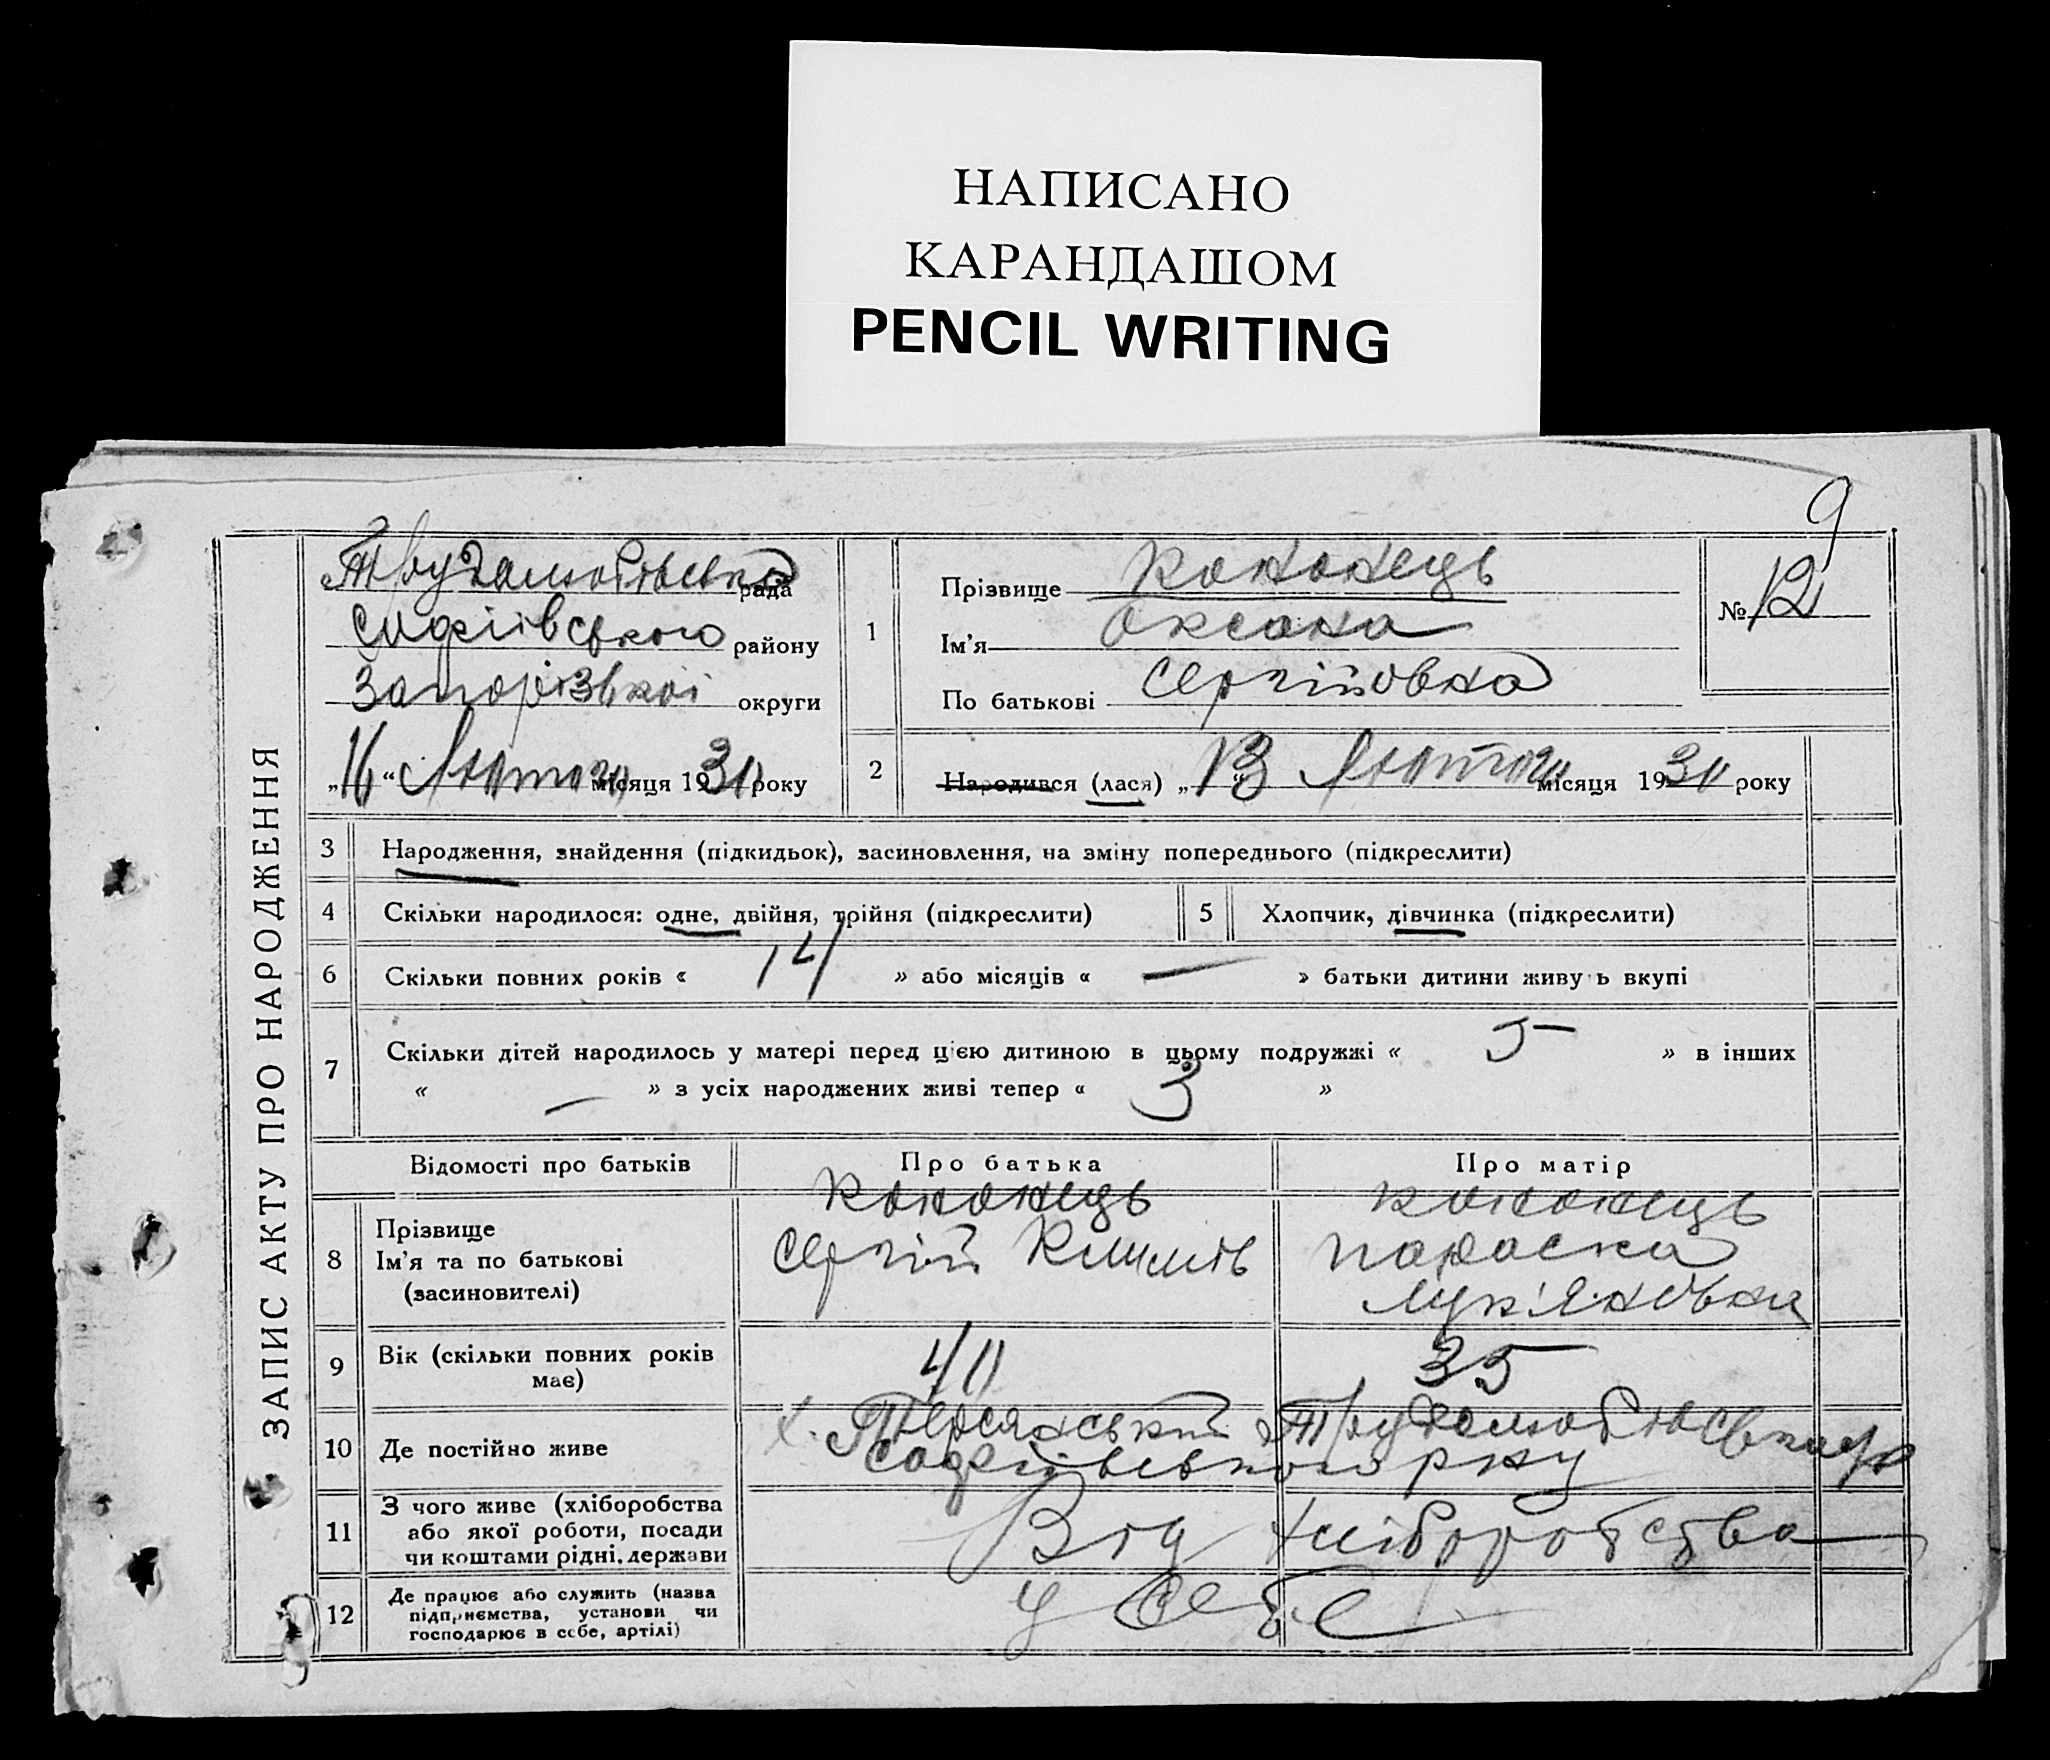 НАПИСАНО
КАРАНДАШОМ
PENCIL WRITING
9
ЗАПИС АКТУ ПРО НАРОДЖЕННЯ
Трудолюбівська рада
Софіївського району
Запорізької округи
„16“ Лютого місяця 1930 року
1
Прізвище Кононець
Ім'я Оксана
По батькові Сергіївна
№ 12
2 Народився (лася) „13“ Лютого місяця 1930 року
3 Народження, знайдення (підкидьок), засиновлення, на зміну попереднього (підкреслити)
4 Скільки народилося: одне, двійня, трійня (підкреслити) 5 Хлопчик, дівчинка (підкреслити)
6 Скільки повних років « 14 » або місяців « — » батьки дитини живу ь вкупі
7 Скільки дітей народилось у матері перед цією дитиною в цьому подружжі « 5 » в інших
« — » з усіх народжених живі тепер « 3 »
Відомості про батьків Про батька Про матір
8 Прізвище Кононець Кононець
Ім'я та по батькові Сергій Климів Параска
(засиновителі) Лук'янівна
9 Вік (скільки повних років 40 35
має)
10 Де постійно живе х.
Софіївського р-ну
11 З чого живе (хліборобства Від хліборобства
або якої роботи, посади
чи коштами рідні, держави
12 Де працює або служить (назва у себе
підприємства, установи чи
господарює в себе, артілі)